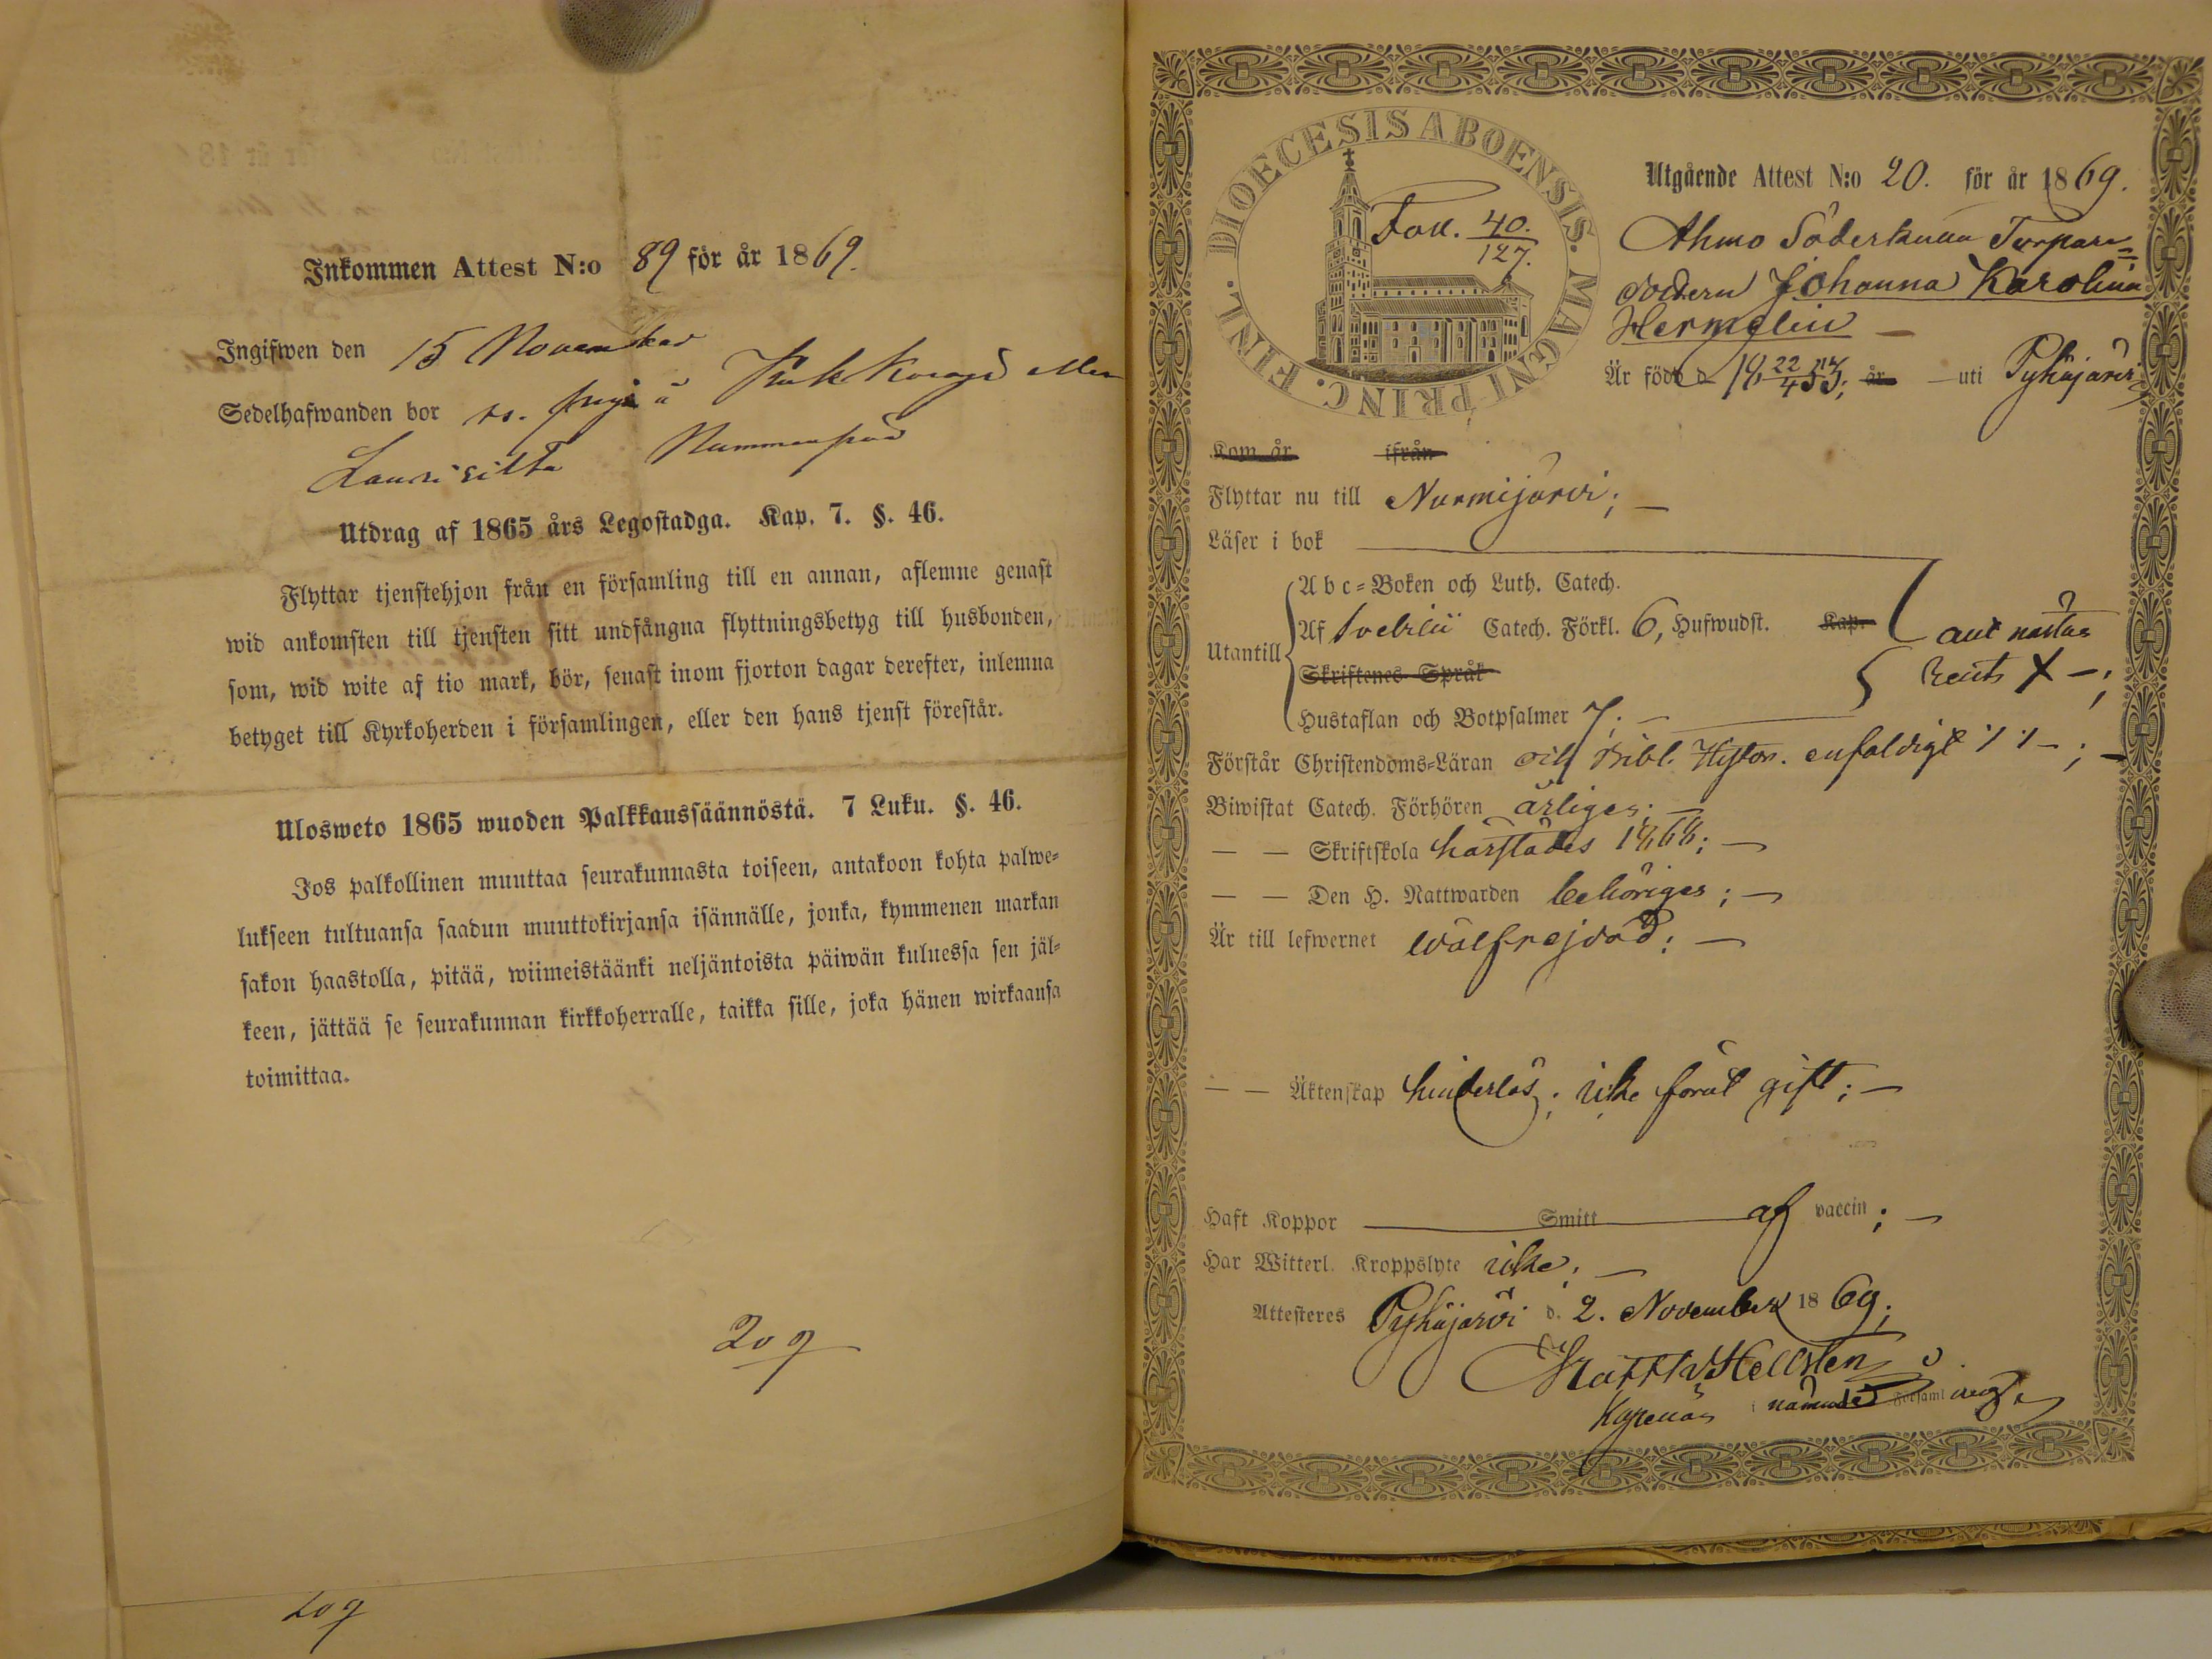 Inkommen Attest N:o 89 för år 1869.
Ingifwen den 15 November
Sedelhafwanden bor
Nummenpää
Utdrag af 1865 års Legostadga. Kap. 7. §. 46.
Flyttar tjenstehjon från en församling till en annan, aflemne genast
wid ankomsten till tjensten sitt undfångna flyttningsbetyg till husbonden,
som, wid wite af tio mark, bör, senast inom fjorton dagar derefter, inlemna
betyget till Kyrkoherden i församlingen, eller den hans tjenst förestår.
Ulosweto 1865 wuoden Palkkaussäännöstä. 7 Luku. §. 46.
Jos palkollinen muuttaa seurakunnasta toiseen, antakoon kohta palwe=
lukseen tultuansa saadun muuttokirjansa isännälle, jonka, kymmenen markan
sakon haastolla, pitää, wiimeistäänki neljäntoista päiwän kuluessa sen jäl=
keen, jättää se seurakunnan kirkkoherralle, taikka sille, joka hänen wirkaansa
toimittaa.
209
209
DIOECESIS ABOENSIS. MAGNI PRINC. FINL.
Foll. 40./127.
Utgående Attest N:o 20. för år 1869.
Ahmo Söderkulla Torpare=
dottern Johanna Karolina
Hermelin —
Är född d. uti Pyhäjärvi
Kom år ifrån
Flyttar nu till Nurmijärvi; —
Läser i bok
Utantill
Abc=Boken och Luth. Catech.
Af Svebilii Catech. Förkl. 6, Hufwudst. Kap.
Skriftenes Språk
Hustaflan och Botpsalmer 7; —
Förstår Christendoms=Läran och Bibl. Histor. enfaldigt
Biwistat Catech. Förhören årligen; —
— — Skriftskola härstädes 1868; —
— — Den H. Nattwarden behörigen; —
Är till lefwernet wälfrejdad; —
— — Äktenskap hinderlös; icke förut gift; —
Haft Koppor Smitt af vaccin; —
Har Witterl. Kroppslyte icke; —
Attesteres Pyhäjärvi d. 2. November 1869;
Matth. Hellsten
i nämnde Församl